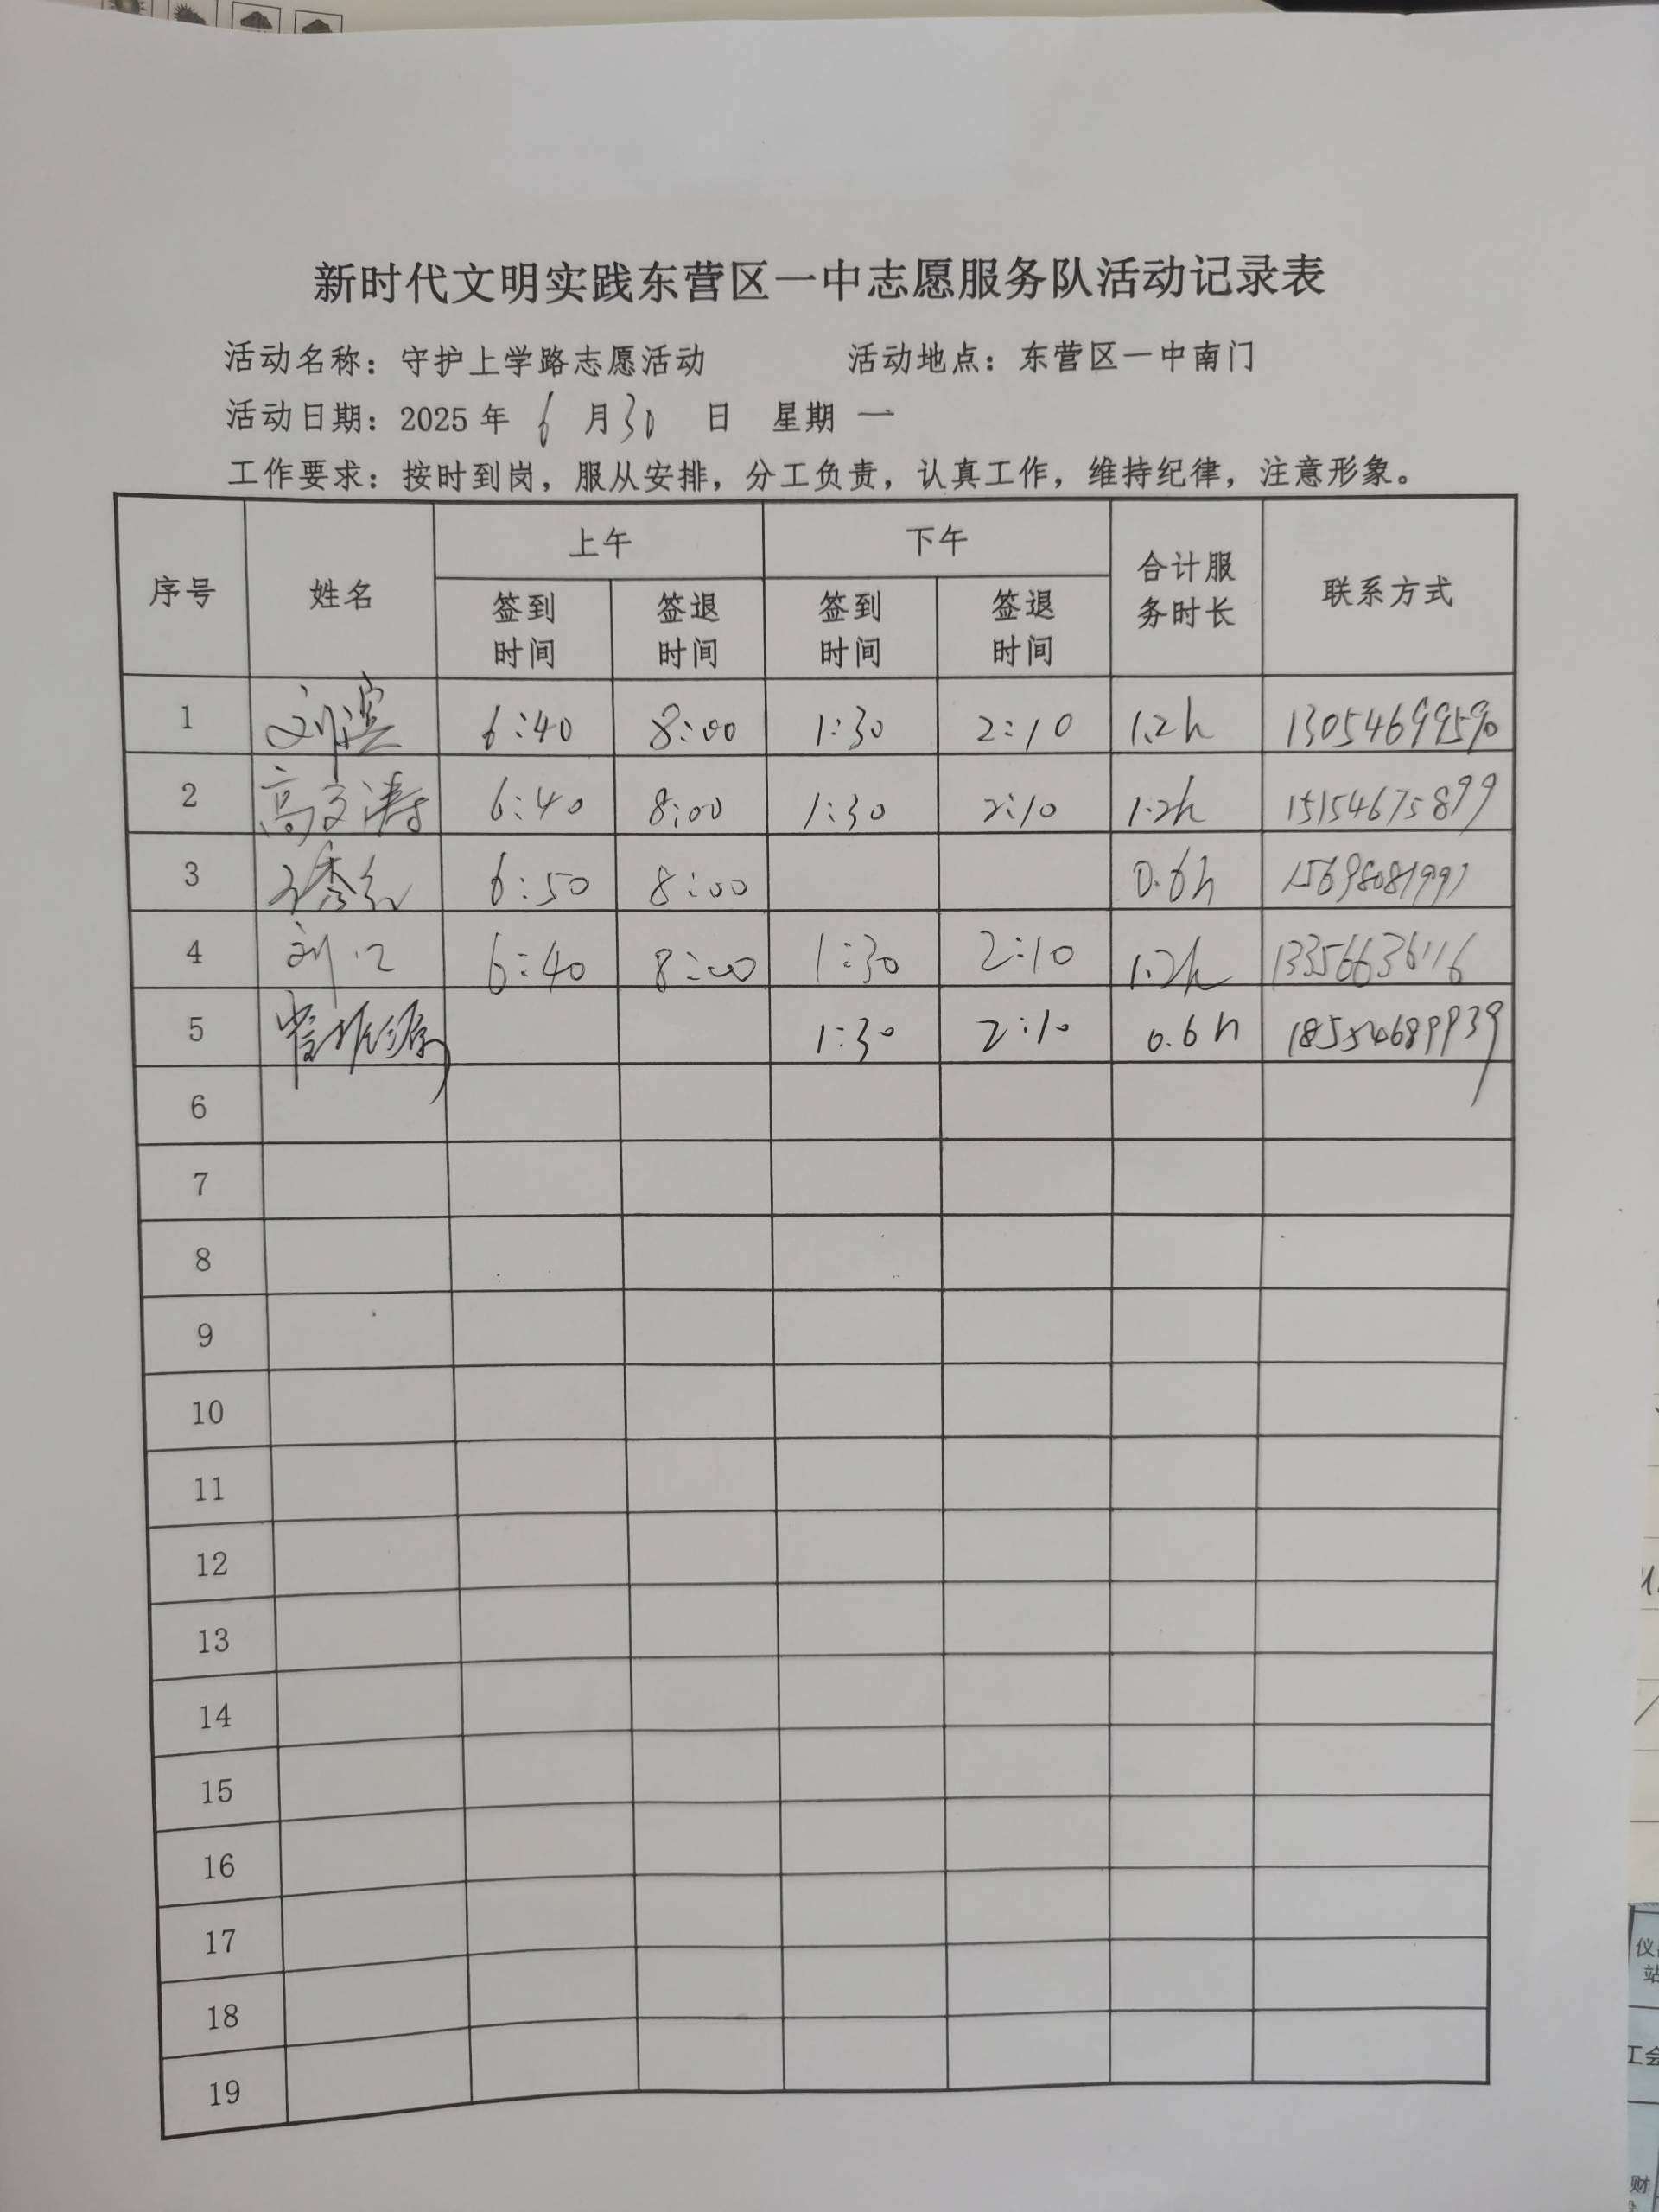 新时代文明实践东营区一中志愿服务队活动记录表
活动名称：守护上学路志愿活动 活动地点：东营区一中南门
活动日期：2025年 6 月 30 日 星期 一
工作要求：按时到岗，服从安排，分工负责，认真工作，维持纪律，注意形象。
序号 姓名 上午 下午 合计服务时长 联系方式
签到时间 签退时间 签到时间 签退时间
1 刘滨 6:40 8:00 1:30 2:10 1.2h 13054699590
2 高文涛 6:40 8:00 1:30 2:10 1.2h 15154675899
3 6:50 8:00 0.6h
4 刘 6:40 8:00 1:30 2:10 1.2h 13356636116
5 1:30 2:10 0.6h 18554689939
6
7
8
9
10
11
12
13
14
15
16
17
18
19
仪
站
工会
财